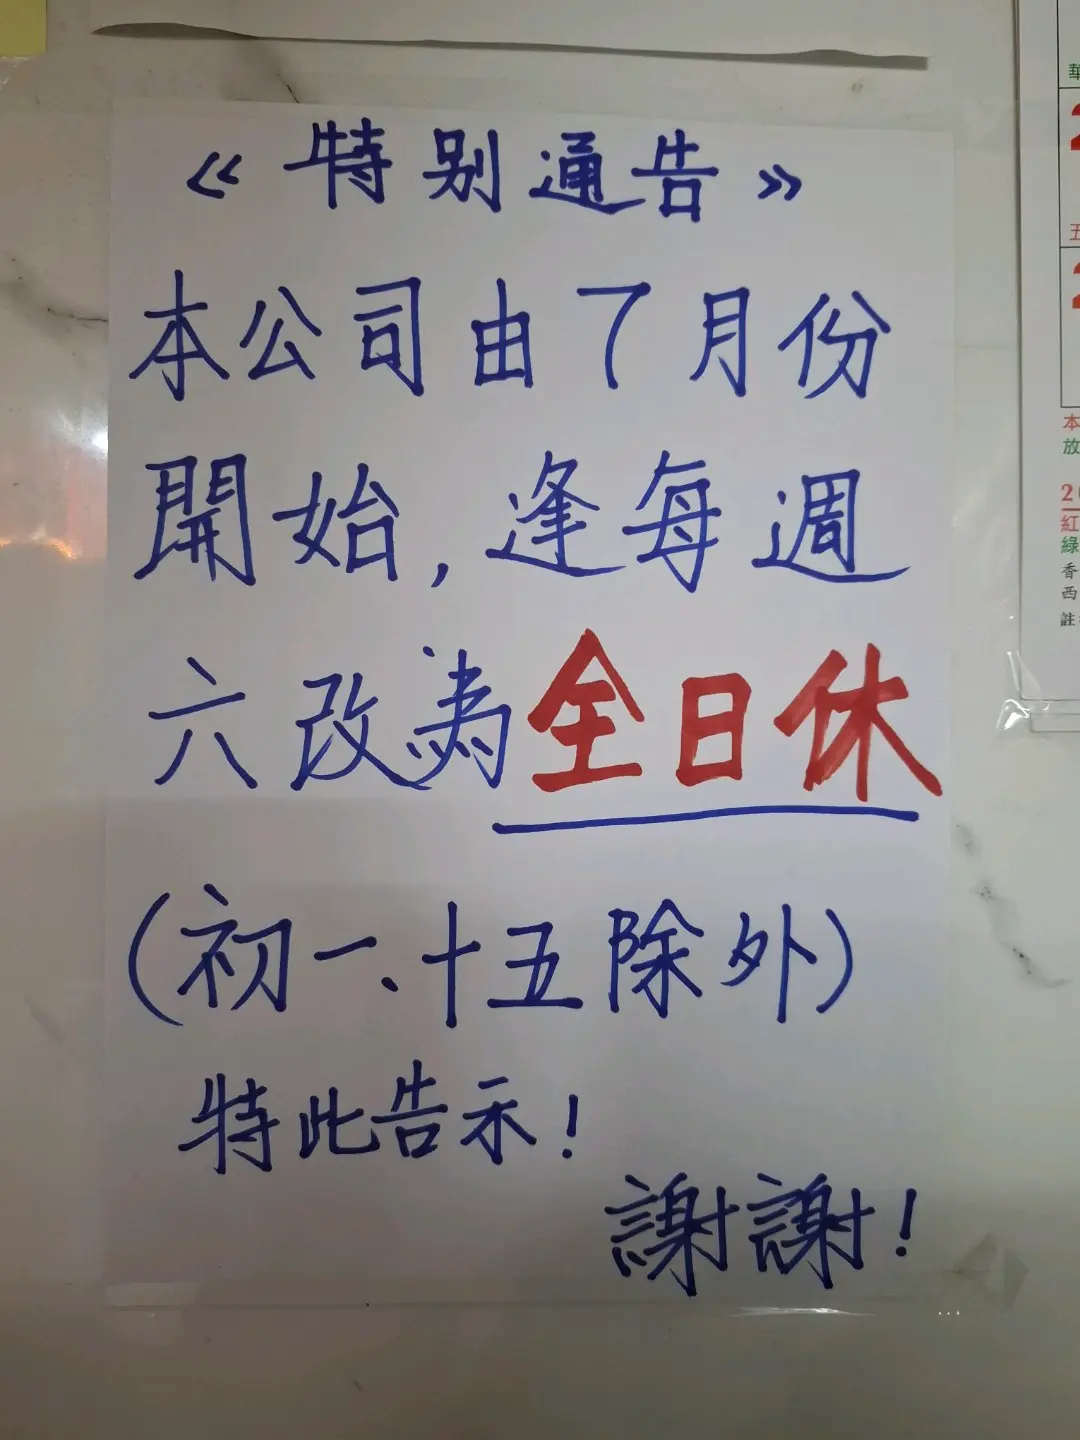 《特别通告》
本公司由7月份
開始,逢每週
六改為全日休
(初一、十五除外)
特此告示!
謝謝!
華
五
本
放
紅
綠
香
西
註: